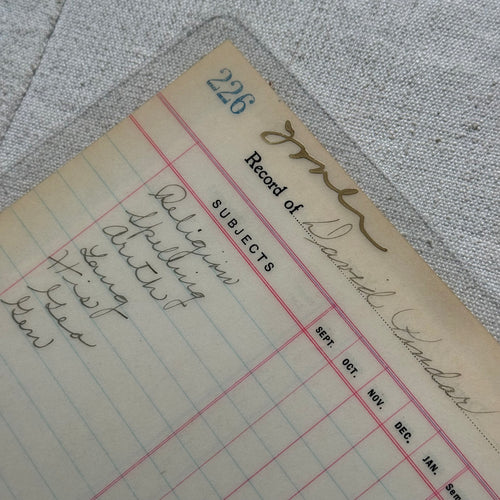 226
Jones
Record of David
SUBJECTS
SEPT. OCT. NOV. DEC. JAN. Sem
Religion
Spelling
Arith
Lang
Hist
Geo
Gen